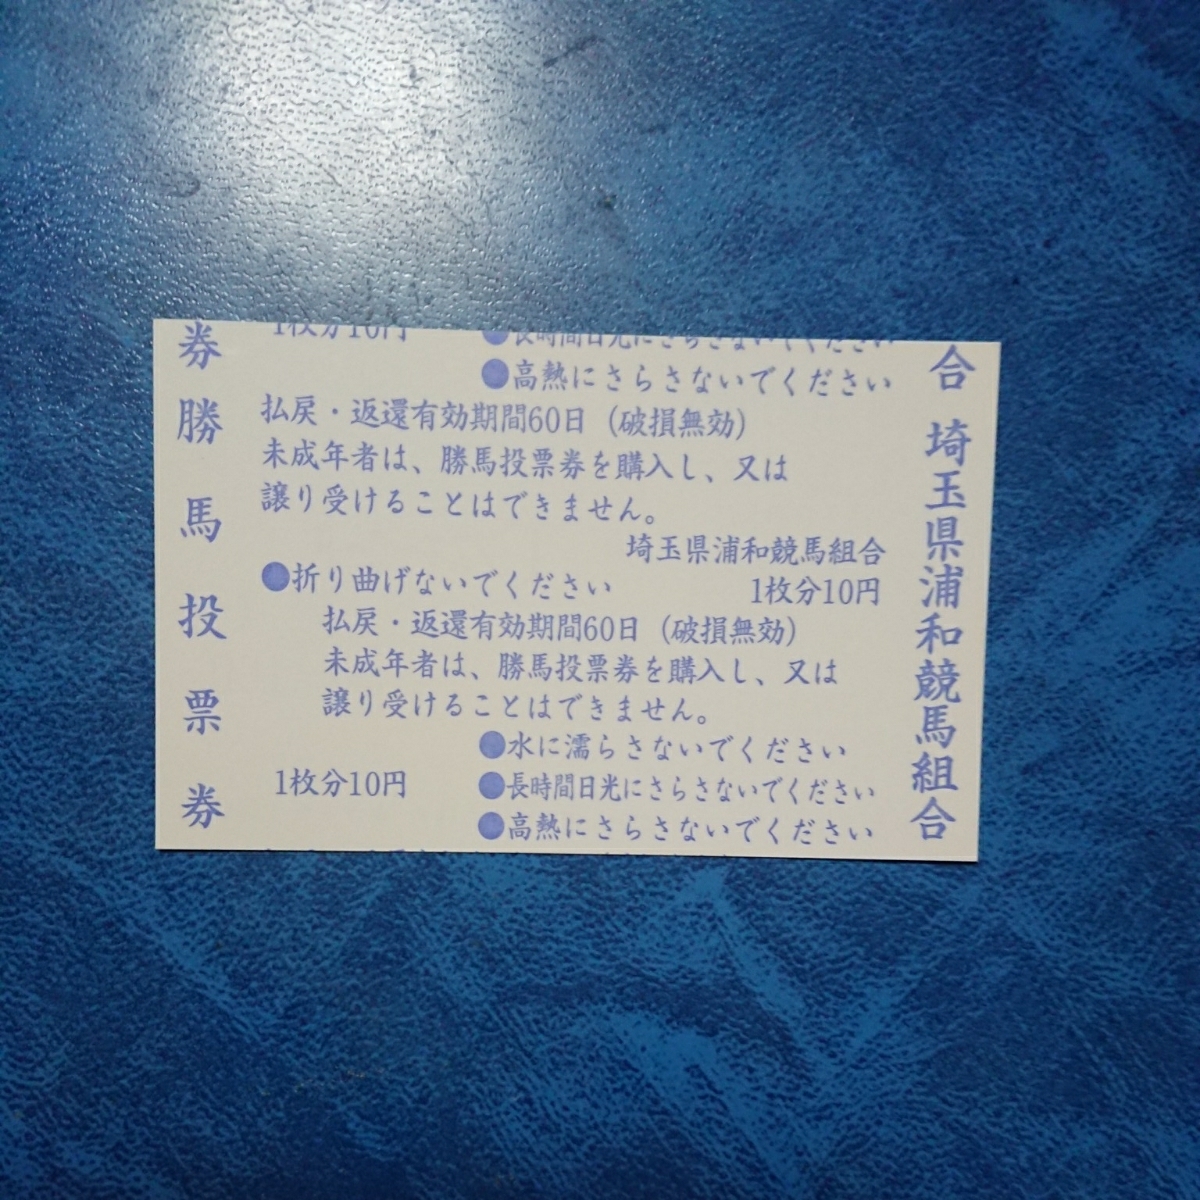 券
勝馬投票券
1枚分10円
●長時間日光にさらさないでください
●高熱にさらさないでください
払戻・返還有効期間60日（破損無効）
未成年者は、勝馬投票券を購入し、又は
譲り受けることはできません。
埼玉県浦和競馬組合
●折り曲げないでください
1枚分10円
払戻・返還有効期間60日（破損無効）
未成年者は、勝馬投票券を購入し、又は
譲り受けることはできません。
●水に濡らさないでください
1枚分10円
●長時間日光にさらさないでください
●高熱にさらさないでください
合
埼玉県浦和競馬組合